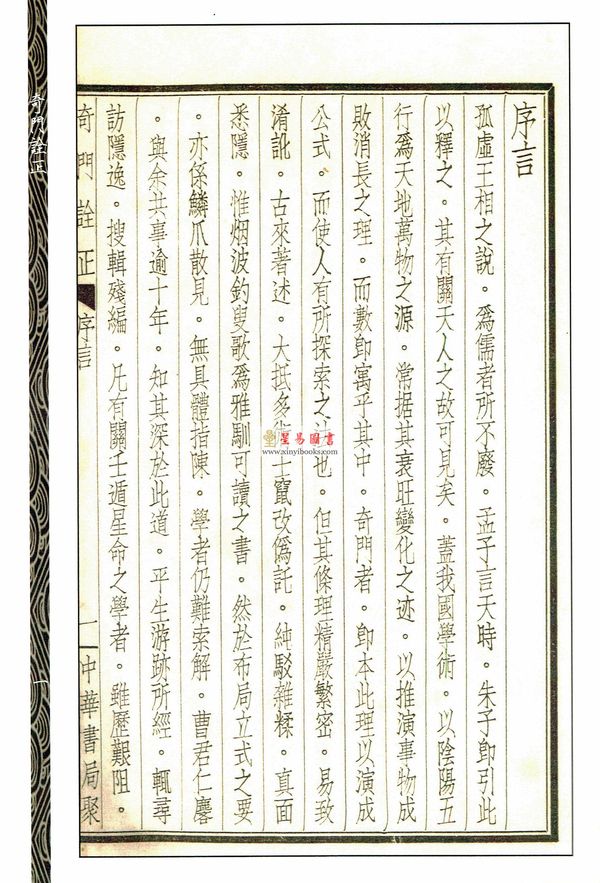 序言
孤虛王相之說。爲儒者所不廢。孟子言天時。朱子卽引此
以釋之。其有關天人之故可見矣。蓋我國學術。以陰陽五
行爲天地萬物之源。常据其衰旺變化之迹。以推演事物成
敗消長之理。而數卽寓乎其中。奇門者。卽本此理以演成
公式。而使人有所探索之 也。但其條理精嚴繁密。易致
淆訛。古來著述。大抵多 士竄改僞託。純駁雜糅。真面
悉隱。惟烟波釣叟歌爲雅馴可讀之書。然於布局立式之要
。亦係鱗爪散見。無具體指陳。學者仍難索解。曹君仁麐
。與余共事逾十年。知其深於此道。平生游跡所經。輒尋
訪隱逸。搜輯殘編。凡有關壬遁星命之學者。雖歷艱阻。
奇門詮正 序言 一 中華書局聚
奇門詮正
一
星易圖書
www.xinyibooks.com